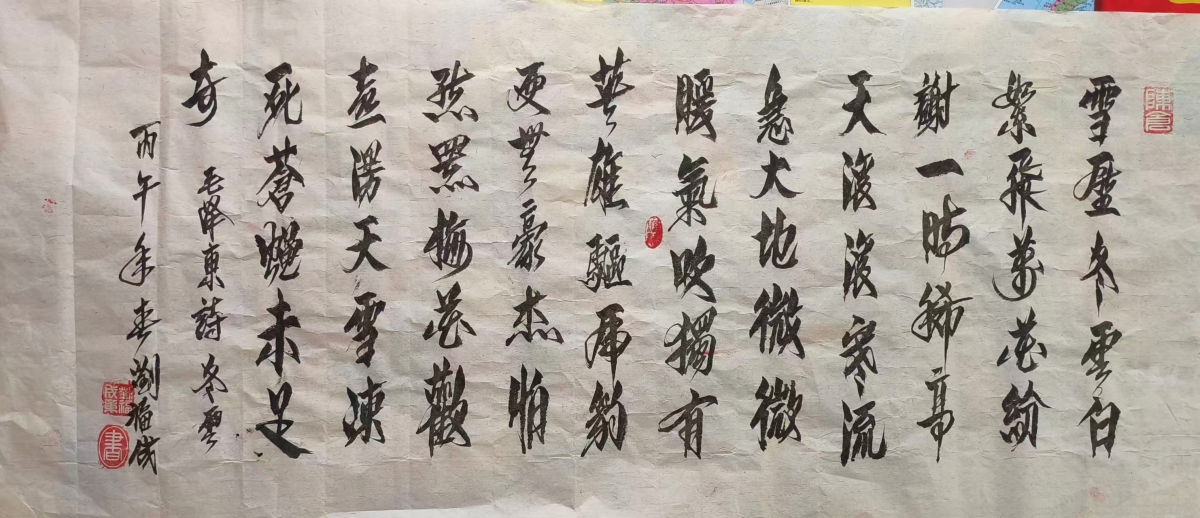 陳倉
雪壓冬雲白
絮飛萬花紛
謝一時稀高
天滾滾寒流
急大地微微
暖氣吹獨有
英雄驅虎豹
更無豪杰怕
熊羆梅花歡
喜漫天雪凍
死蒼蠅未足
奇
毛澤東詩冬雲
丙午年春劉福成
書